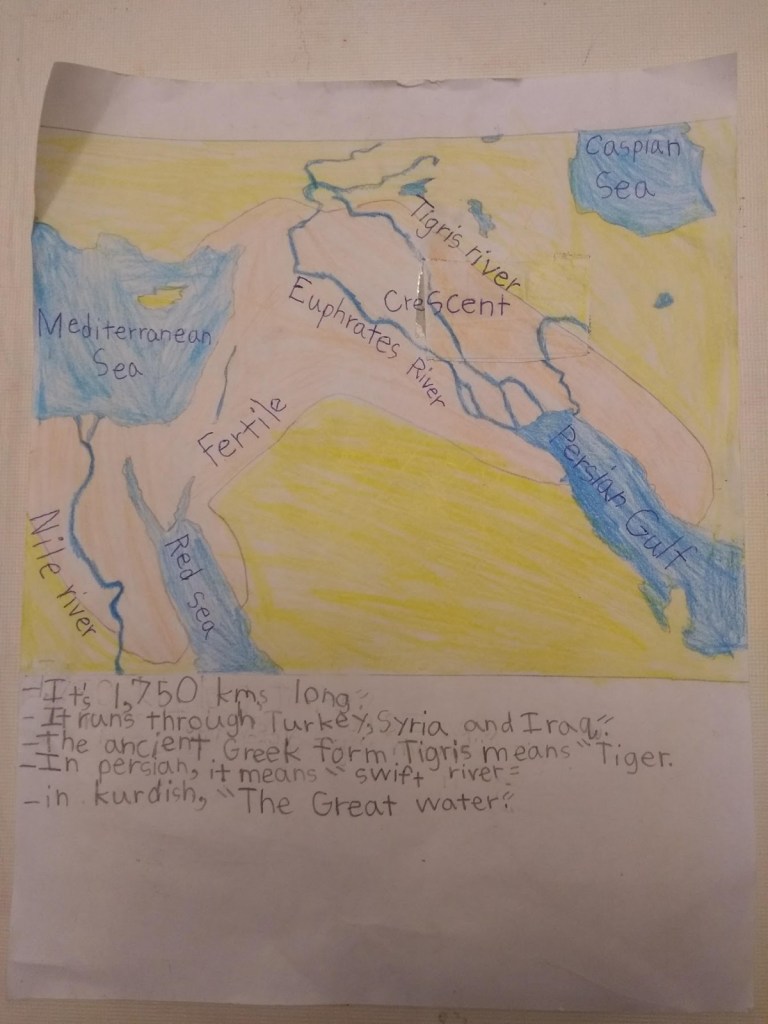 Caspian
Sea
Tigris river
Crescent
Euphrates River
Mediterranean
Sea
Fertile
Persian Gulf
Nile river
Red sea
- It's 1,750 kms long."
- It runs through Turkey, Syria and Iraq."
- The ancient Greek form Tigris means "Tiger.
- In persian, it means " swift river "
- in kurdish, "The Great water."